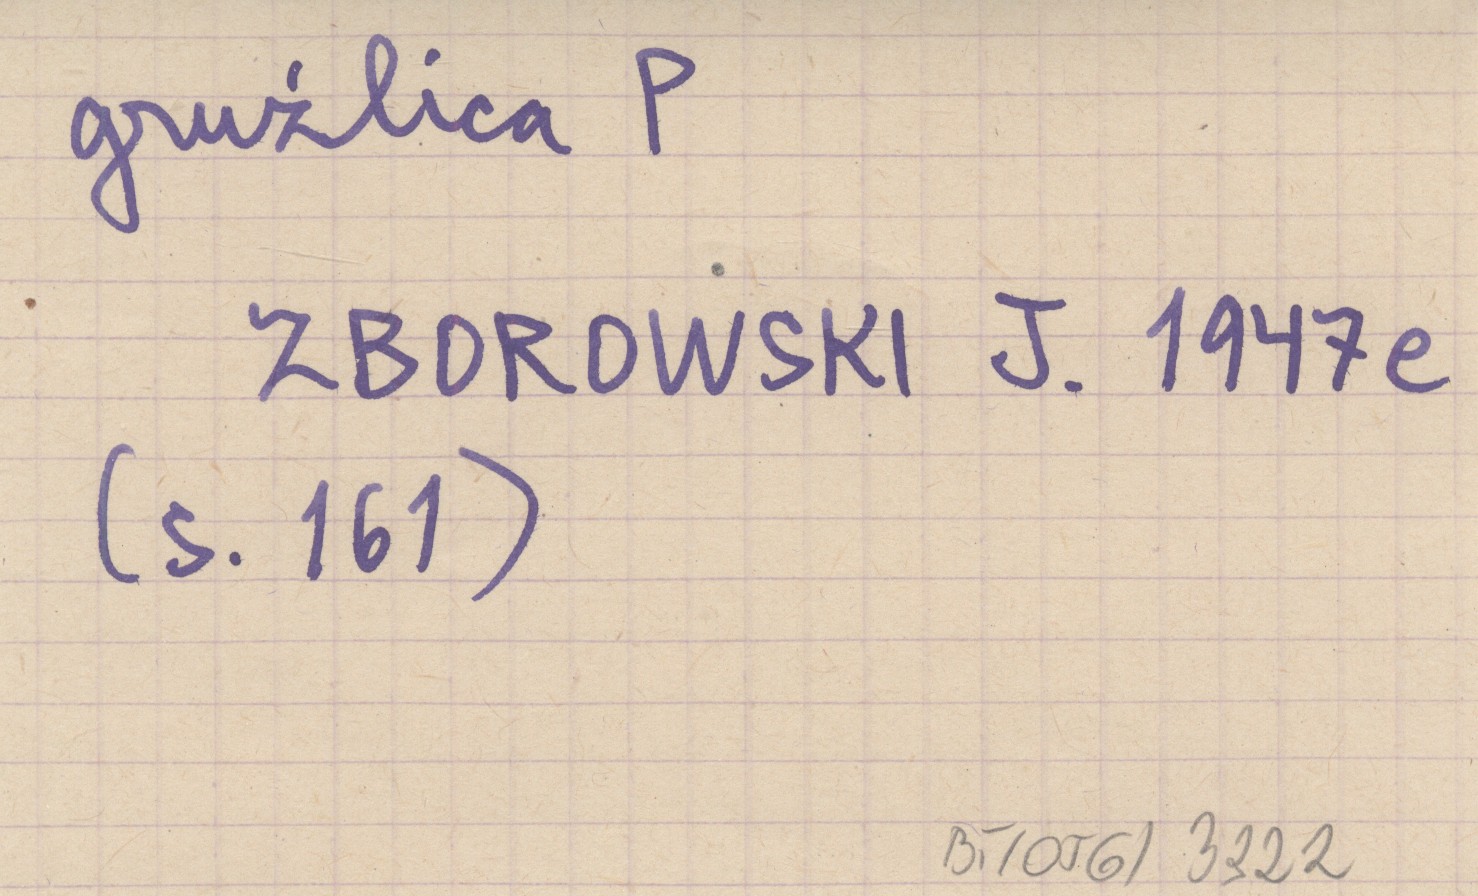 gruźlica P
ZBOROWSKI J. 1947e
(s. 161)
BT/OJG/ 3322